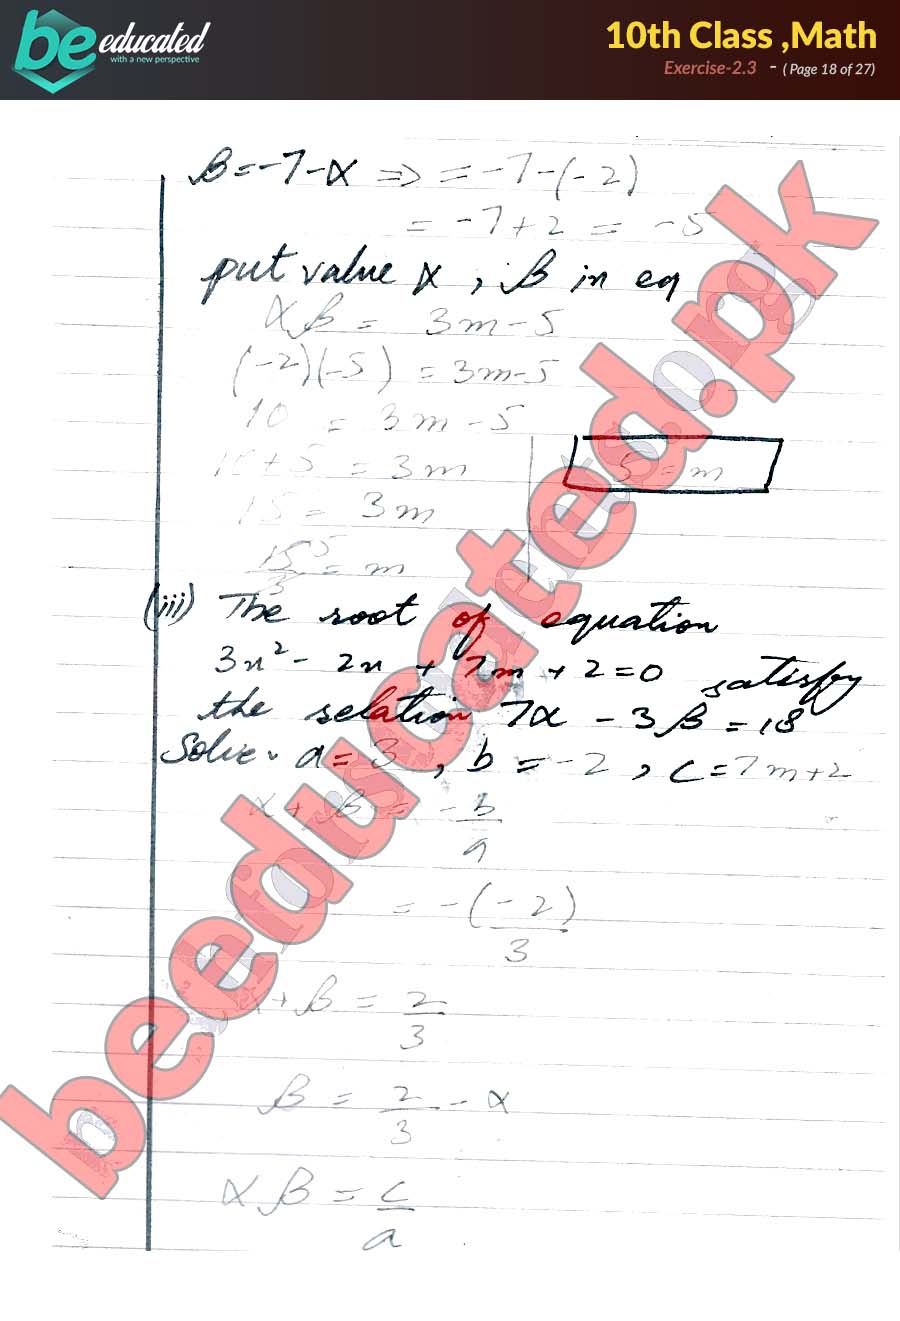 be educated
with a new perspective
10th Class ,Math
Exercise-2.3 - ( Page 18 of 27)
β = -7 - α ⇒ = -7 - (-2)
= -7 + 2 = -5
put value α , β in eq
αβ = 3m - 5
(-2)(-5) = 3m - 5
10 = 3m - 5
10 + 5 = 3m
5 = m
15 = 3m
15/3 5 = m
(iii) The root of equation
3x² - 2x + 7m + 2 = 0 satisfy
the relation 7α - 3β = 18
Solve. a = 3 , b = -2 , c = 7m + 2
α + β = -b/a
= -(-2)/3
α + β = 2/3
β = 2/3 - α
αβ = c/a
beeducated.pk